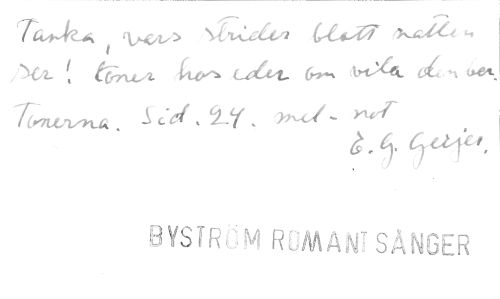 Tanka, vars strider blott natten
ser! toner hos eder om vila den ber.
Tonerna. Sid. 24. mel-not
E. G. Geijer.
BYSTRÖM ROMANT SÅNGER